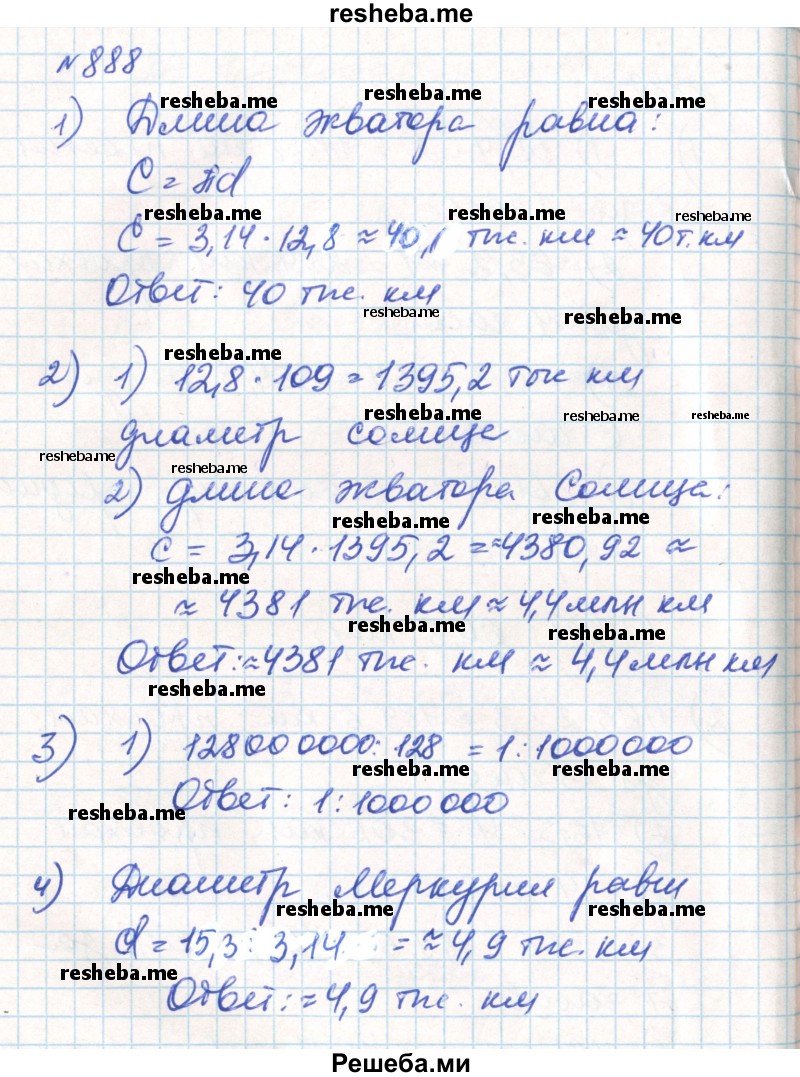 resheba.me
№888
resheba.me resheba.me resheba.me
1) Длина экватора равна:
C = πd
resheba.me resheba.me resheba.me
C = 3,14 · 12,8 ≈ 40,1 тыс. км ≈ 40т. км
Ответ: 40 тыс. км
resheba.me resheba.me
resheba.me
2) 1) 12,8 · 109 = 1395,2 тыс км
resheba.me resheba.me resheba.me
диаметр солнце
resheba.me resheba.me
2) длина экватора Солнца:
resheba.me resheba.me
C = 3,14 · 1395,2 = ≈4380,92 ≈
resheba.me
≈ 4381 тыс. км ≈ 4,4 млн км
resheba.me resheba.me
Ответ: ≈4381 тыс. км ≈ 4,4 млн км
resheba.me
3) 1) 128000000 : 128 = 1 : 1000000
resheba.me resheba.me
Ответ: 1 : 1000 000
resheba.me
4) Диаметр Меркурия равен
resheba.me resheba.me
d = 15,3 : 3,14 = ≈ 4,9 тыс. км
resheba.me
Ответ: ≈ 4,9 тыс. км
Решеба.ми